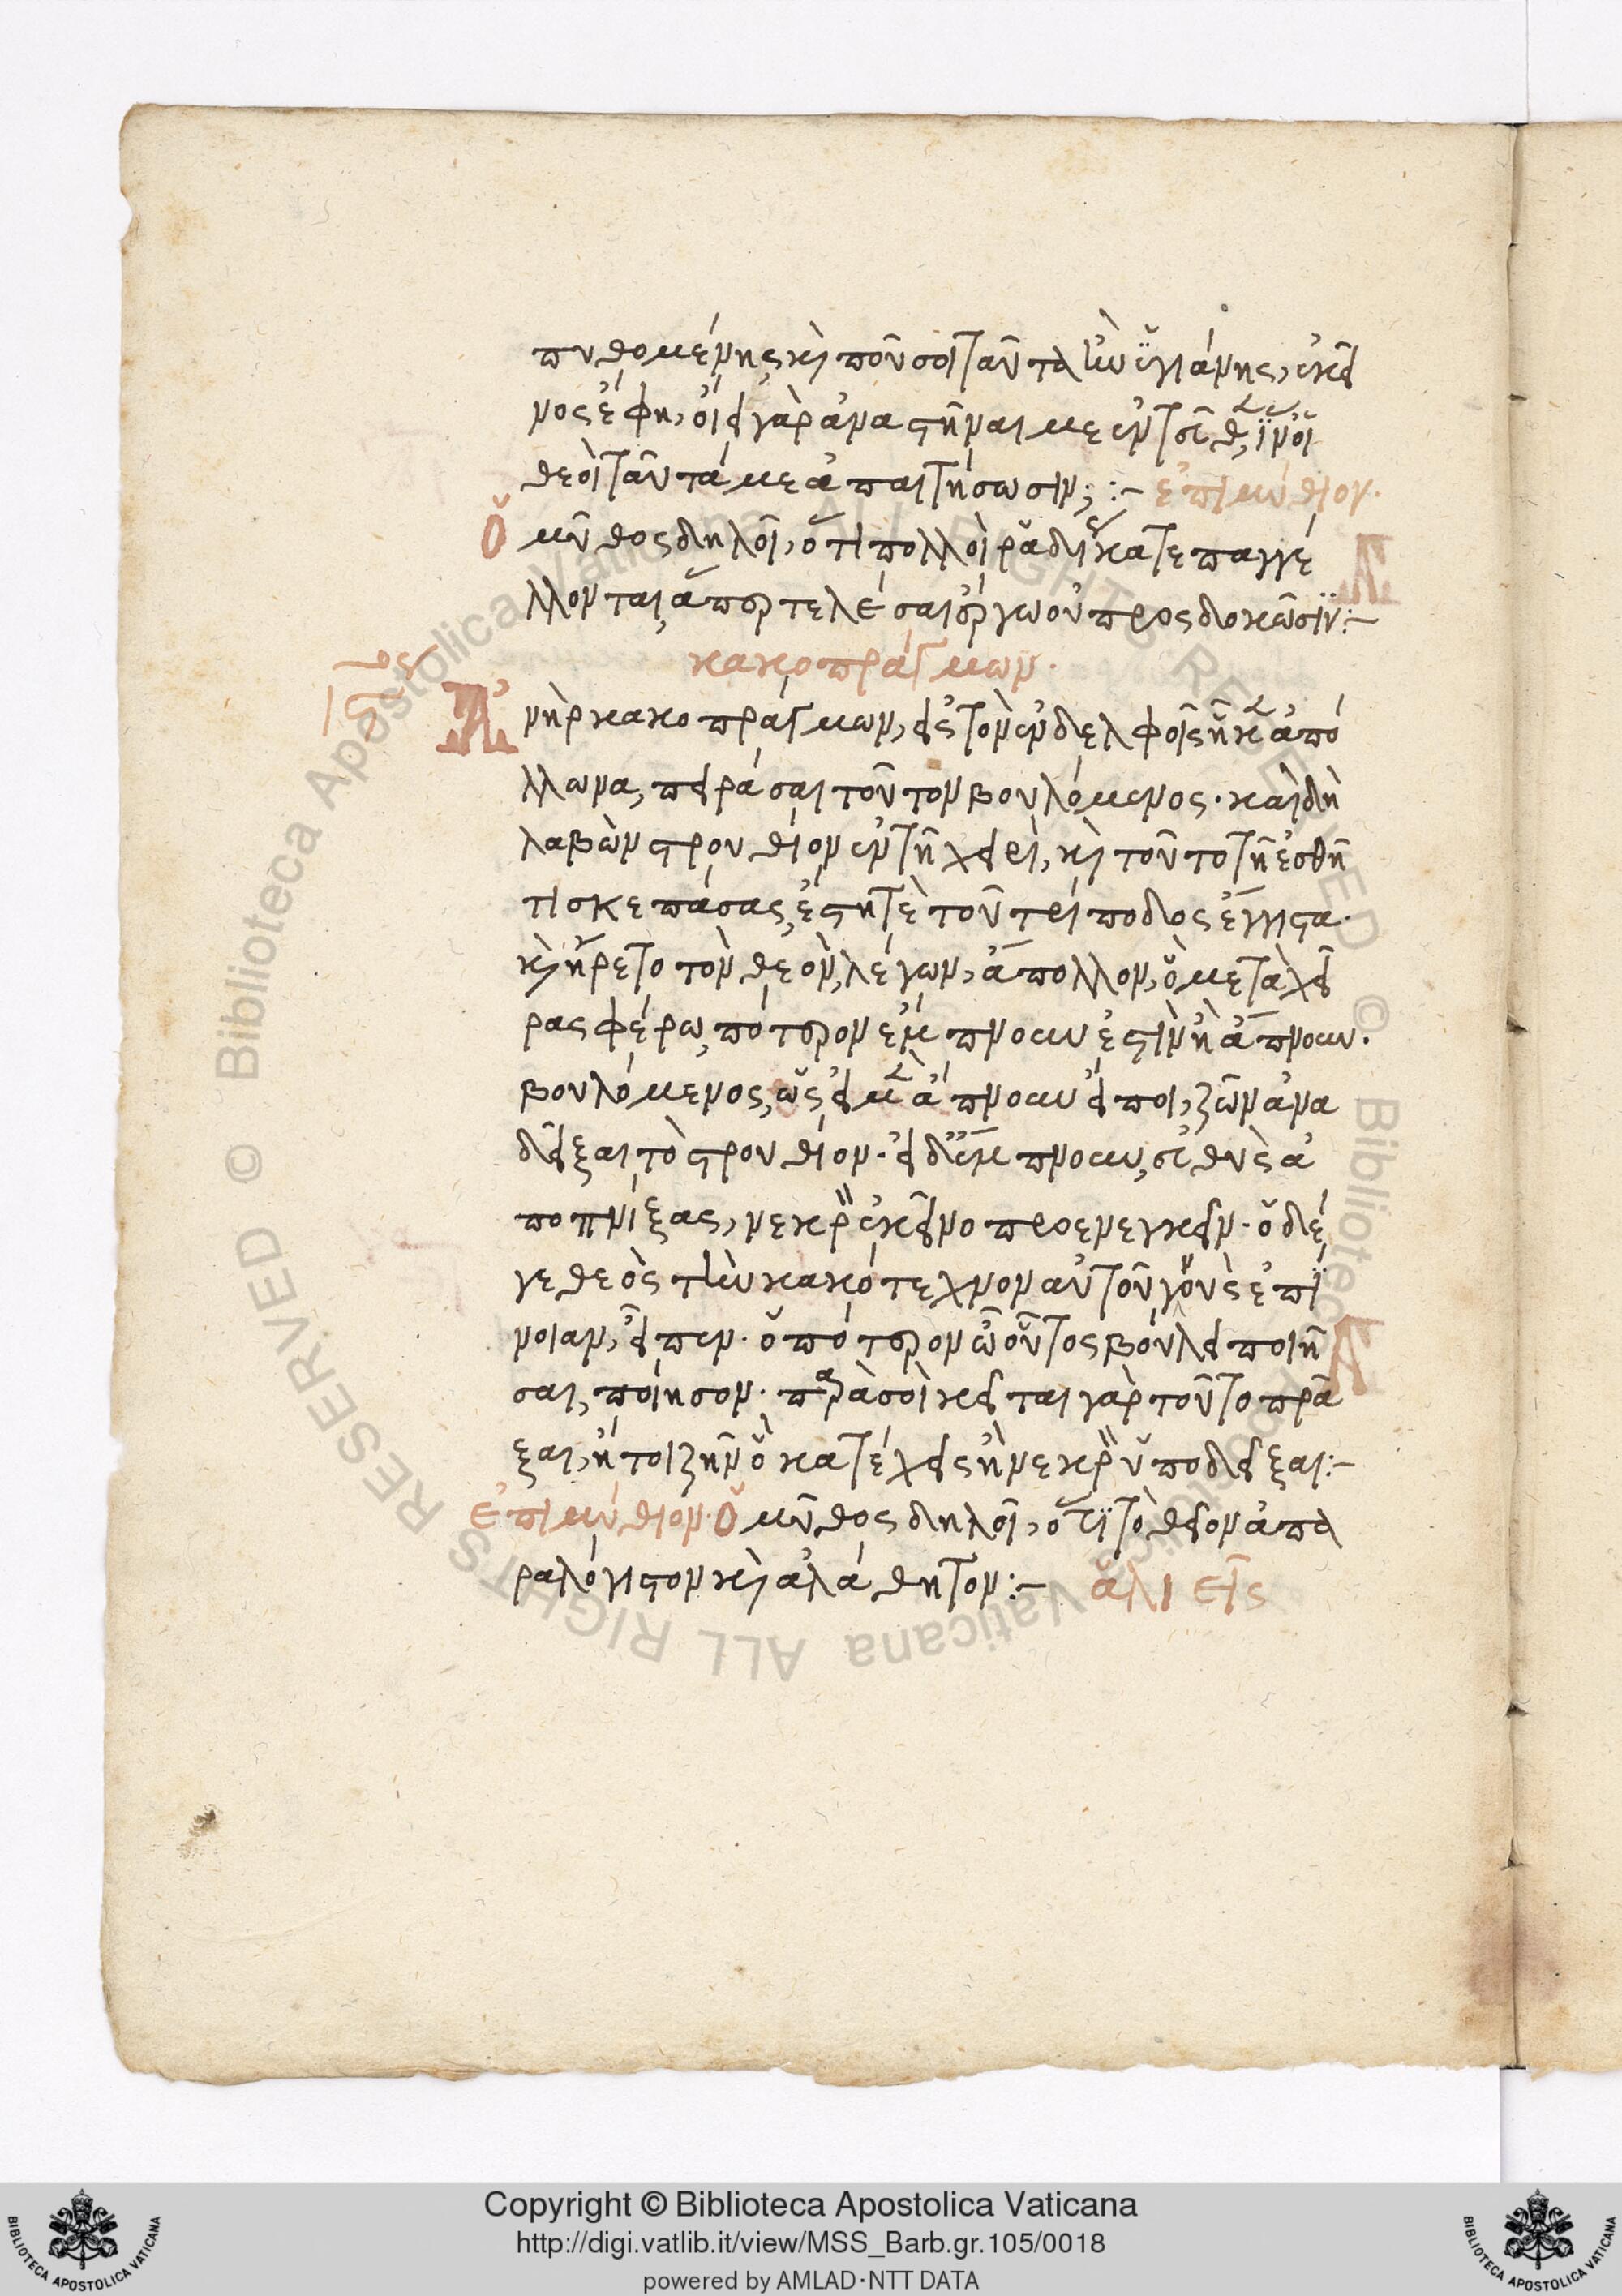 πυθομένης, κὶ ποῦ σοι ταῦτα ἐὰν ὑγιάνης, ἐκεῖ
νος ἔφη, οἴει γὰρ ἀναστῆναί με ἐν τού θεν, ἵν᾽ οἱ
θεοὶ ταῦτά με ἀπαιτήσωσιν; :- ἐπιμύθιον.
Ὁ μῦθος δηλοῖ, ὅτι πολλοὶ ῥαδίως κατεπαγγέ
λλονται, ἃ περ τελέσαι ἔργω οὐ προσδοκῶσιν:-
κακοπράγμων.
Ἀνὴρ κακοπράγμων, εἰς τὸν ἐν δελφοῖς ἧκεν ἀπό
λλωνα, πειράσαι τοῦτον βουλόμενος. καὶ δὴ
λαβὼν στρουθίον ἐν τῇ χειρὶ, κὶ τοῦτο τῇ ἐσθῆ
τι σκεπάσας, ἔστη τὲ τοῦ τρίποδος ἔγγιστα.
κὶ ἤρετο τὸν θεὸν, λέγων, ἄπολλον, ὃ μετὰ χεῖ
ρας φέρω, πότερον ἔμπνουν ἐστὶν ἢ ἄπνουν.
βουλόμενος, ὡς εἰ μὲν ἄπνουν εἴποι, ζῶν ἀνα
δεῖξαι τὸ στρουθίον. εἰ δ᾽ ἔμπνουν, εὐθὺς ἀ
ποπνίξας, νεκρὸν ἐκεῖνο προενεγκεῖν. ὁ δέ
γε θεὸς τὴν κακότεχνον αὐτοῦ γνοὺς ἐπί
νοιαν, εἶπεν. ὁπότερον ὦ οὗτος βούλει ποιῆ
σαι, ποίησον. παρὰ σοὶ κεῖται γὰρ τοῦτο πρᾶ
ξαι, ἤτοι ζῆν ὃ κατέχεις ἢ νεκρὸν ὑποδεῖξαι:-
ἐπιμύθιον. Ὁ μῦθος δηλοῖ, ὅτι τὸ θεῖον ἀπα
ραλόγιστον κὶ ἀλάθητον:- ἁλιεῖς
Copyright © Biblioteca Apostolica Vaticana
http://digi.vatlib.it/view/MSS_Barb.gr.105/0018
powered by AMLAD·NTT DATA
BIBLIOTECA APOSTOLICA VATICANA
BIBLIOTECA APOSTOLICA VATICANA